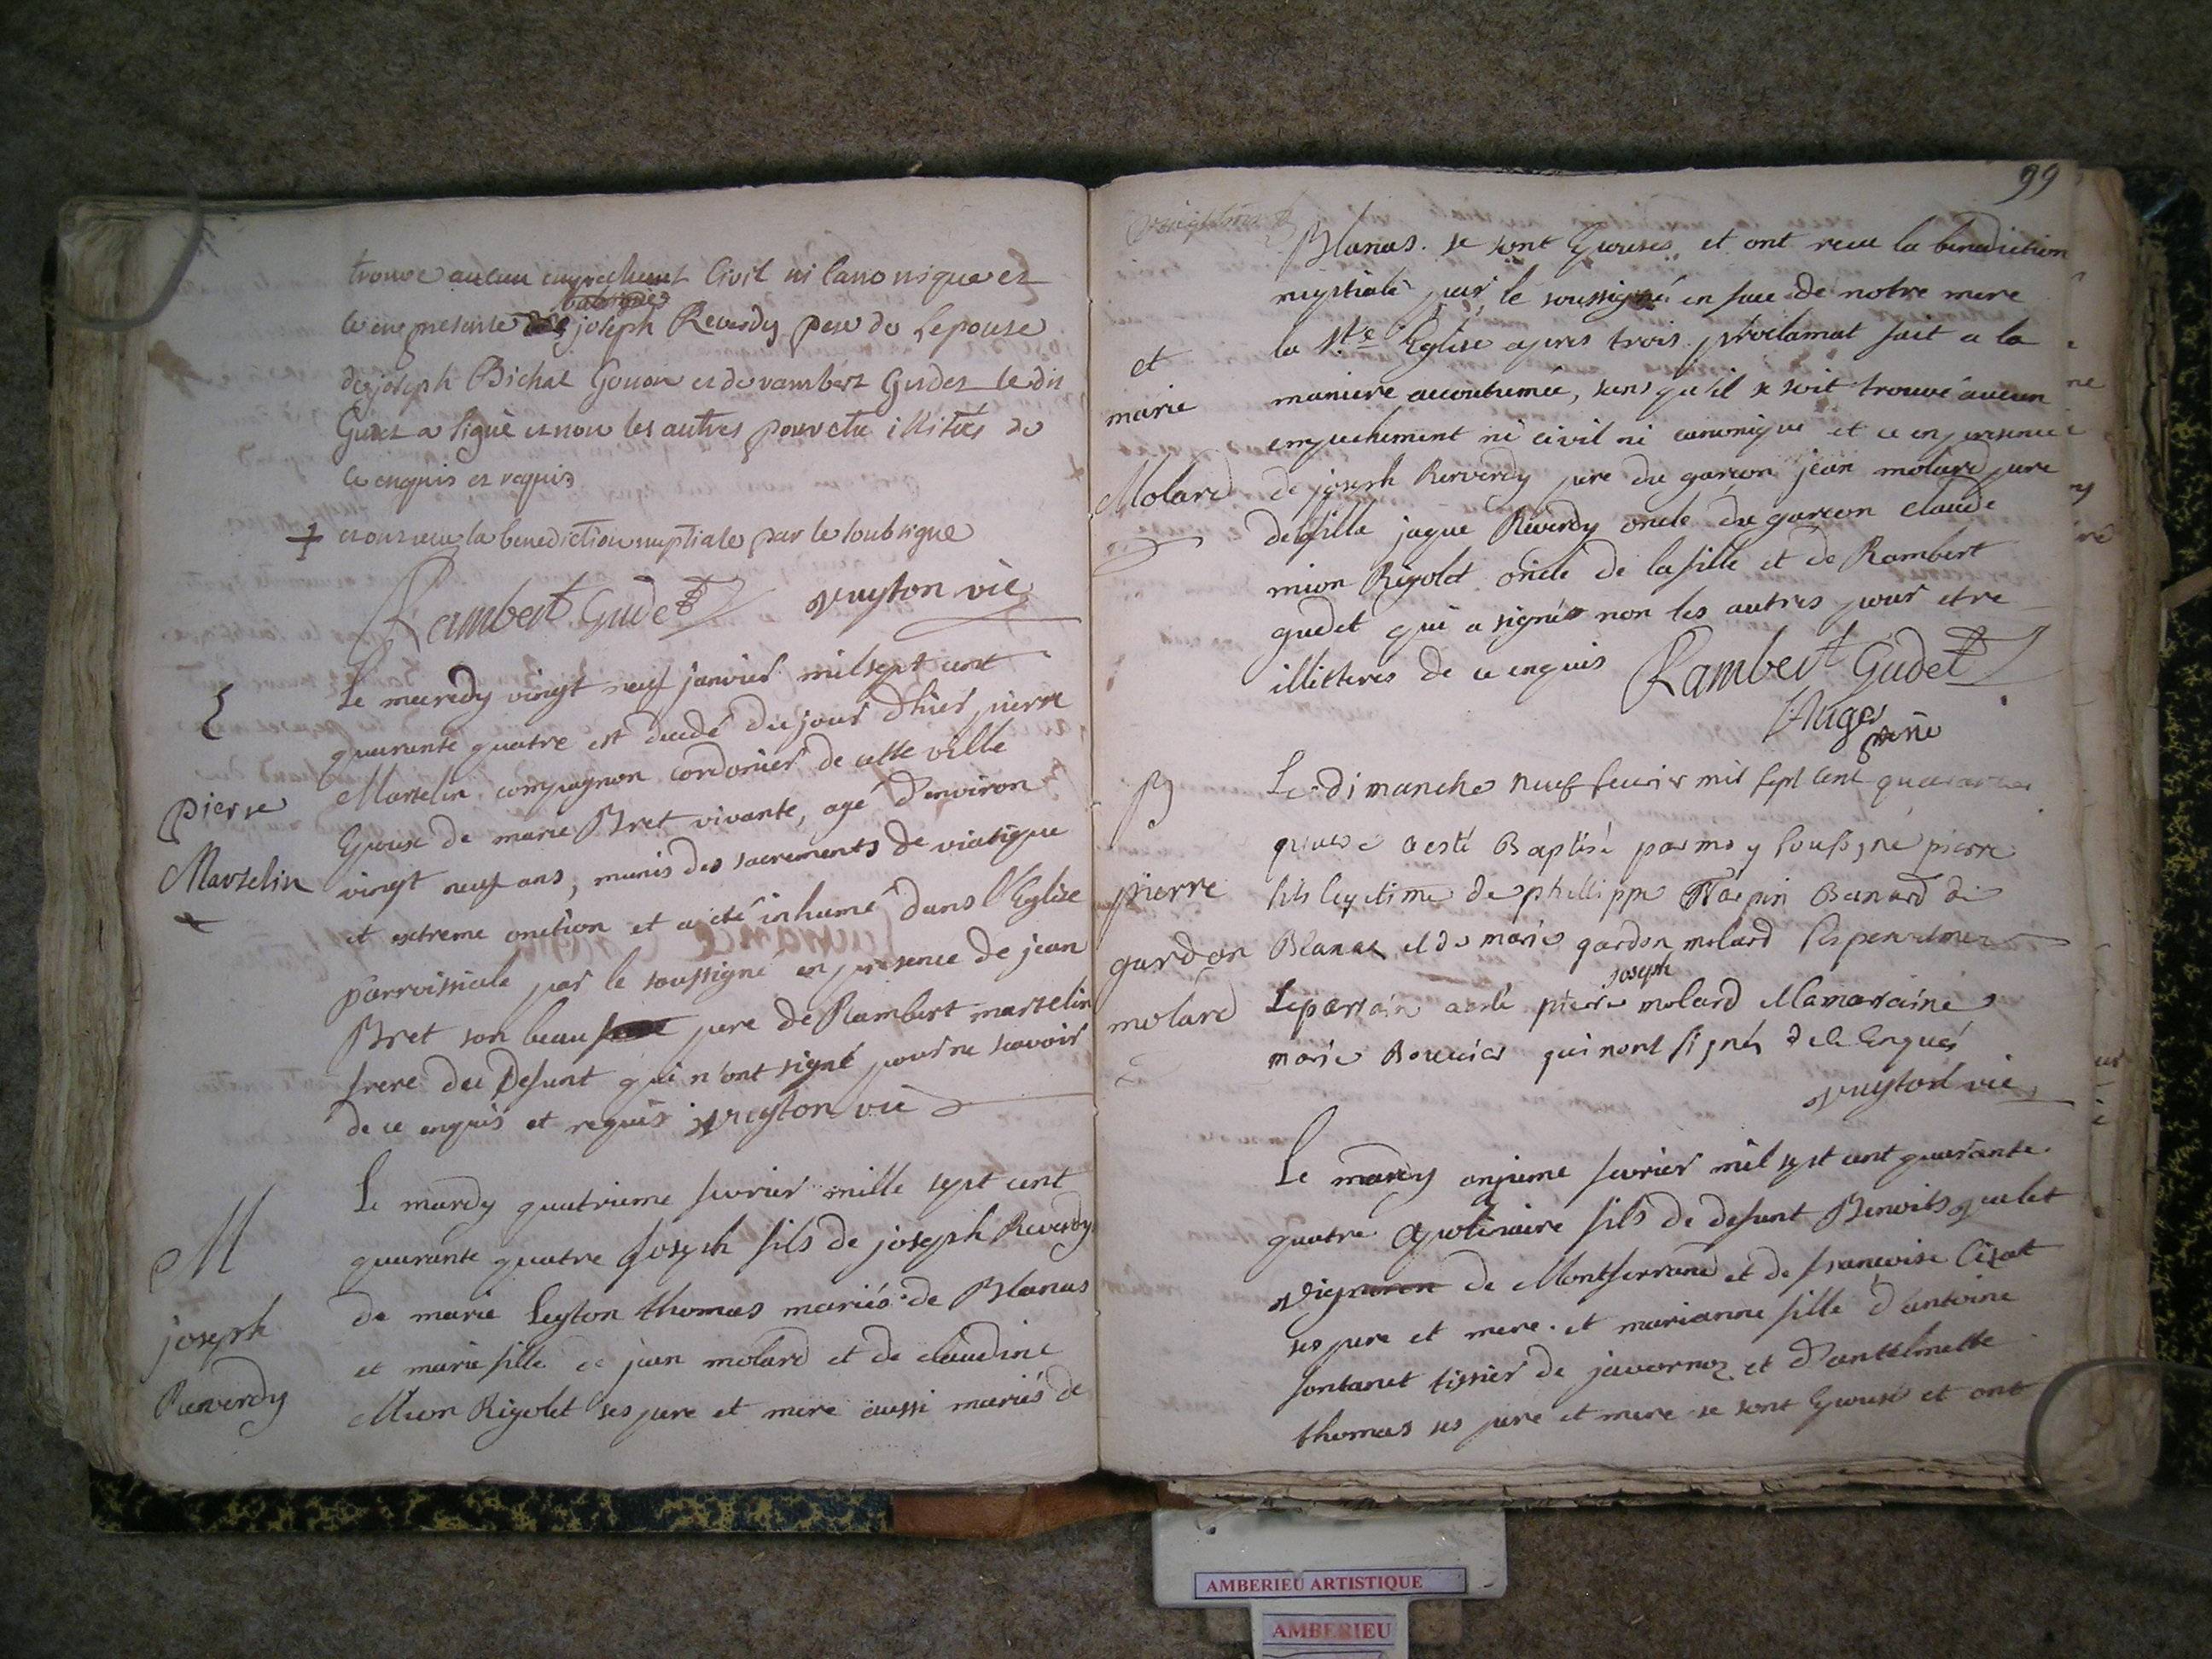 trouvé aucun empechement Civil ni Canonique et
ce en presence joseph Reverdy pere de Lepouse
de joseph Bichat Gonon et de rambert Gudet le dit
Gudet a signé et non les autres pour etre illiterés de
ce enquis et requis
+ et ont receu la benediction nuptiale par le soubsigné
Rambert Gudet veyton vic
Le mecredy vingt neuf janvier mil sept cent
quarante quatre est decedé du jour d'hier pierre
Marcelin compagnon cordonier de cette ville
Epoux de marie Bret vivante, agé d'environ
pierre
Marcelin
vingt neuf ans, munis des sacrements de viatique
et extreme onction et a eté inhumé dans l'Eglise
parroissiale par le soussigné en presence de jean
Bret son beau pere de Rambert marcelin
frere du Defunt qui n'ont signé pour ne scavoir
de ce enquis et requis veyton vic
M
joseph
Reverdy
Le mardy quatrieme fevrier mille sept cent
quarante quatre joseph fils de joseph Reverdy
de marie Leyton thomas mariés de Blanas
et marie fille de jean molard et de claudine
Mion Rigolet ses pere et mere aussi mariés de
99
Blanas. se sont Epousés et ont receu la benediction
nuptiale par le soussigné en face de notre mere
la Ste Eglise apres trois proclamat fait a la
et
marie
Molard
maniere accoutumée, sans qu'il se soit trouvé aucun
empechement ni civil ni canonique et ce en presence
de joseph Reverdy pere du garcon jean molard pere
de la fille jaque Reverdy oncle du garcon claude
mion Rigolet oncle de la fille et de Rambert
gudet qui a signé non les autres pour etre
illitteres de ce enquis Rambert Gudet
B
pierre
gardon
molard
Le dimanche neuf fevrier mil sept cent quarante
quatre a esté Baptisé par moy soussigné pierre
fils legitime de phillippe Benard de
Blanas et de marie gardon molard ses pere et mere
joseph
Le parrain a esté pierre molard et la maraine
marie Bouvier qui n'ont signés de ce Enquis
veyton vic
Le mardy onzieme fevrier mil sept cent quarante
quatre Apolinaire fils de defunt Benoits
vigneron de Montferrand et de françoise
ses pere et mere. et marianne fille d'antoine
fontanet tissier de javornoz et d'antelmette
thomas ses pere et mere se sont Epousé et ont
AMBERIEU ARTISTIQUE
AMBERIEU